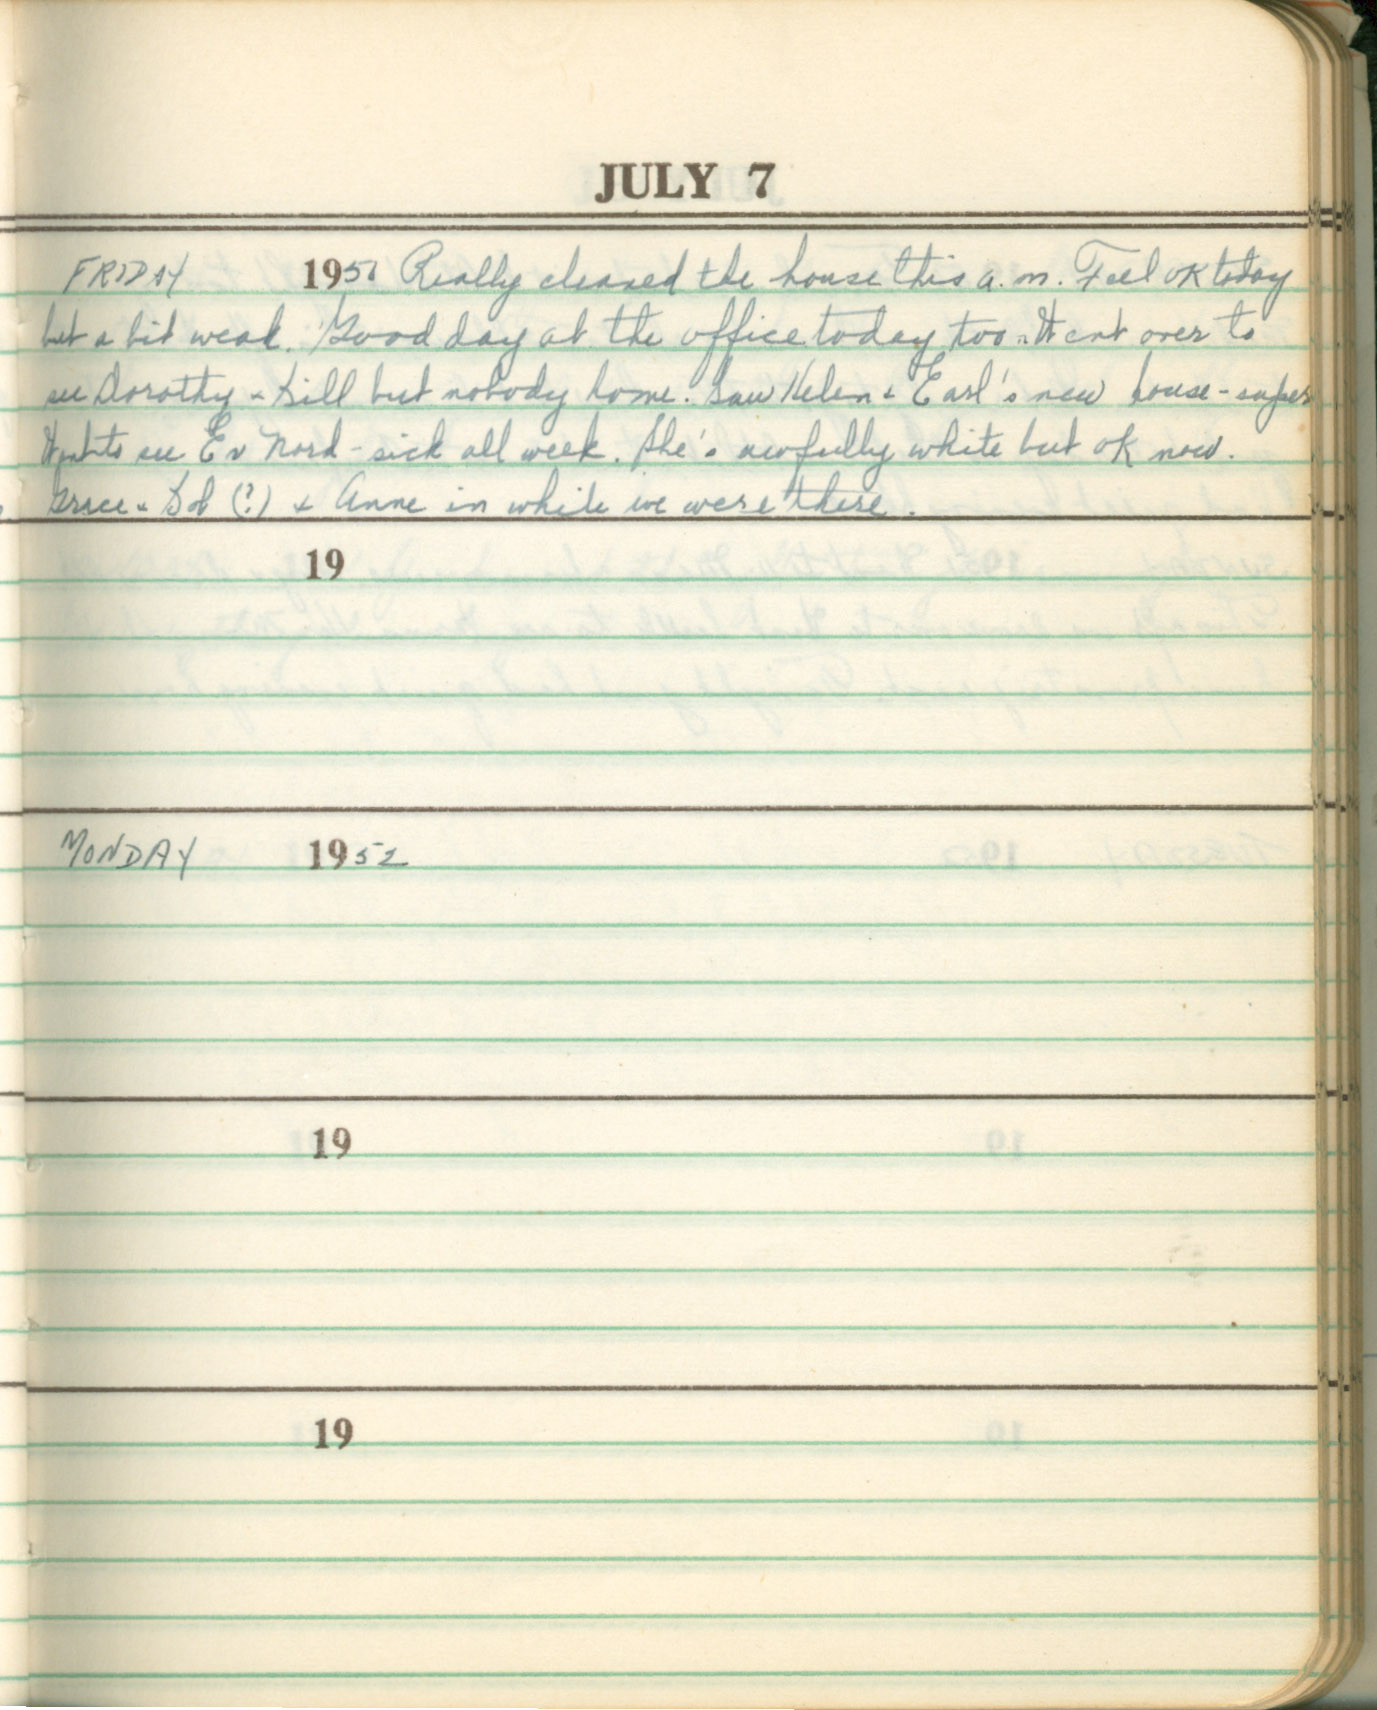 JULY 7
FRIDAY 1950 Really cleaned the house this a.m. Feel OK today
but a bit weak. Good day at the office today too. Went over to
see Dorothy & Bill but nobody home. Saw Helen & Earl's new house - super
Went to see Ev Nord - sick all week. She's awfully white but ok now.
Grace & Bob (?) & Anne in while we were there.
19
MONDAY 1952
19
19